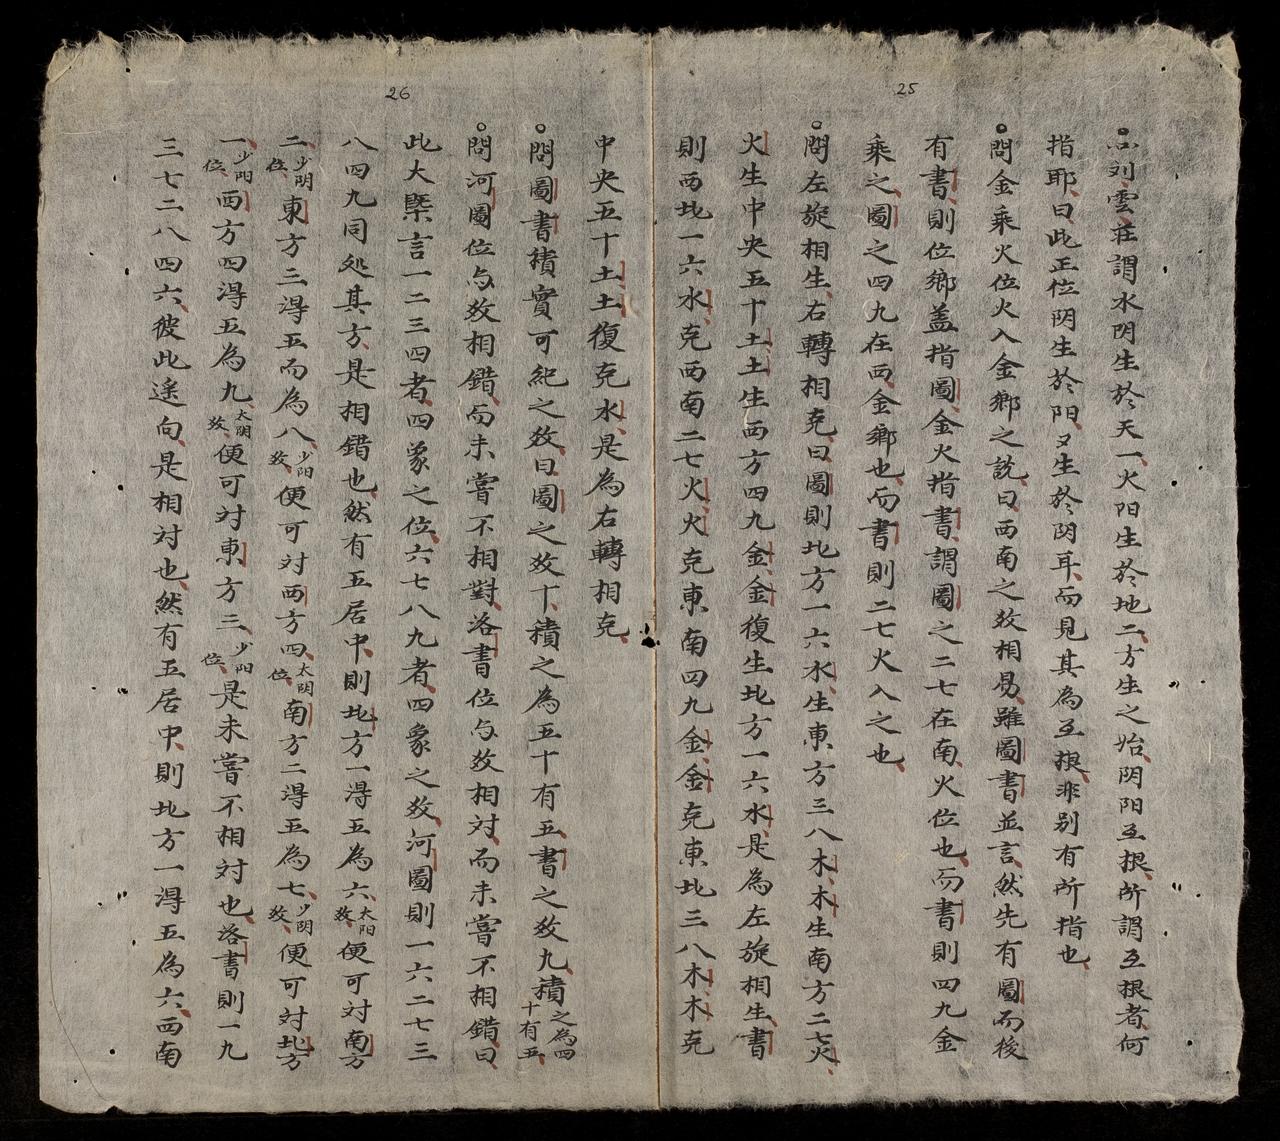 25
問刘雲荘謂水阴生於天一火阳生於地二方生之始阴阳互根所謂互根者何
指耶曰此正位阴生於阳又生於阴耳而見其為互根非别有所指也
問金乘火位火入金鄉之說曰西南之数相易雖圖書並言然先有圖而後
有書則位鄉盖指圖金火指書謂圖之二七在南火位也而書則四九金
乘之圖之四九在西金鄉也而書則二七火入之也
問左旋相生右轉相克曰圖則北方一六水生東方三八木木生南方二七火
火生中央五十土土生西方四九金金復生北方一六水是為左旋相生書
則西北一六水克西南二七火火克東南四九金金克東北三八木木克
26
中央五十土土復克水是為右轉相克
問圖書積實可紀之数曰圖之数十積之為五十有五書之数九積之為四十有五
問河圖位与数相錯而未嘗不相對洛書位与数相対而未嘗不相錯曰
此大槩言一二三四者四象之位六七八九者四象之数河圖則一六二七三
八四九同处其方是相錯也然有五居中則北方一得五為六太阳数便可対南方
二少阴位東方三得五而為八少阳数便可対西方四太阴位南方二得五為七少阴数便可対北方
一少阳位西方四得五為九太阴数便可対東方三少阳位是未嘗不相対也洛書則一九
三七二八四六彼此遥向是相対也然有五居中則北方一得五為六西南